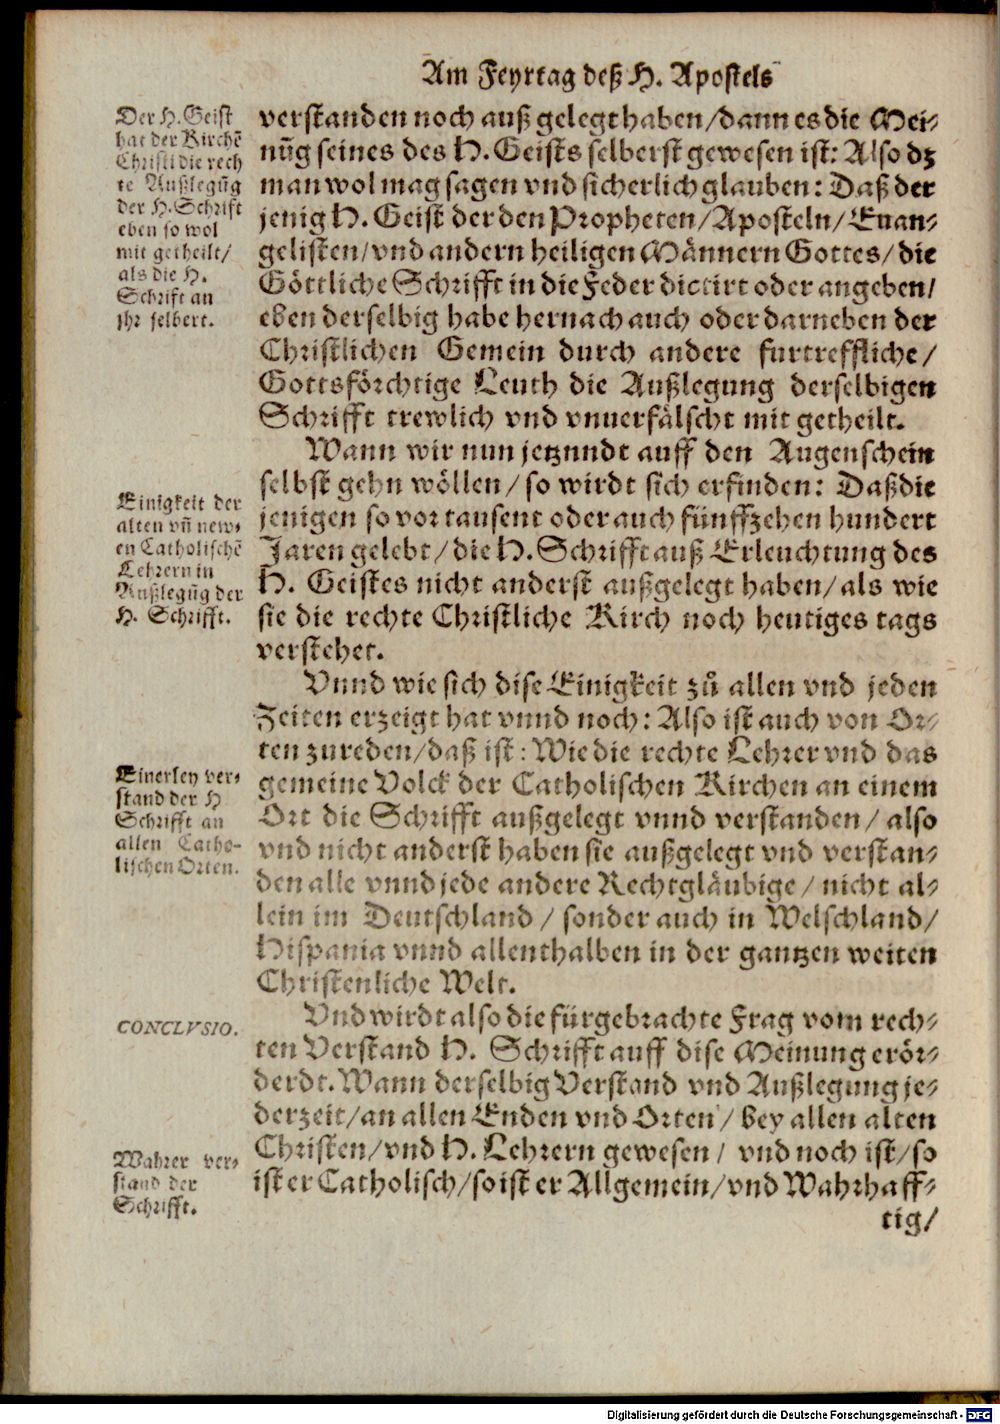 Am Feyrtag deß H. Apostels
Der H. Geist
hat der Kirchẽ
Christi die rech
te Außlegũg
der H. Schrift
eben so wol
mit getheilt/
als die H.
Schrift an
jhr selbert.
verstanden noch außgelegt haben/dann es die Mei-
nũg seines des H. Geists selberst gewesen ist: Also dz
man wol mag sagen vnd sicherlich glauben: Daß der
jenig H. Geist der den Propheten/Aposteln/Euan-
gelisten/vnd andern heiligen Männern Gottes/die
Göttliche Schrifft in die Feder dictirt oder angeben/
eben derselbig habe hernach auch oder darneben der
Christlichen Gemein durch andere furtreffliche/
Gottsförchtige Leuth die Außlegung derselbigen
Schrifft trewlich vnd vnuerfälscht mit getheilt.
Wann wir nun jetzundt auff den Augenschein
selbst gehn wöllen/so wirdt sich erfinden: Daß die
jenigen so vor tausent oder auch fünffzehen hundert
Jaren gelebt/die H. Schrifft auß Erleuchtung des
H. Geistes nicht anderst außgelegt haben/als wie
sie die rechte Christliche Kirch noch heutiges tags
verstehet.
Einigkeit der
alten vñ new-
en Catholischẽ
Lehrern in
Außlegũg der
H. Schrifft.
Vnnd wie sich dise Einigkeit zů allen vnd jeden
Zeiten erzeigt hat vnnd noch: Also ist auch von Or-
ten zureden/daß ist: Wie die rechte Lehrer vnd das
gemeine Volck der Catholischen Kirchen an einem
Ort die Schrifft außgelegt vnnd verstanden/ also
vnd nicht anderst haben sie außgelegt vnd verstan-
den alle vnnd jede andere Rechtgläubige/ nicht al-
lein im Deutschland / sonder auch in Welschland/
Hispania vnnd allenthalben in der gantzen weiten
Christenliche Welt.
Einerley ver-
stand der H
Schrifft an
allen Catho-
lischen Orten.
Vnd wirdt also die fürgebrachte Frag vom rech-
ten Verstand H. Schrifft auff dise Meinung erör-
derdt. Wann derselbig Verstand vnd Außlegung je-
derzeit/an allen Enden vnd Orten / bey allen alten
Christen/vnd H. Lehrern gewesen/ vnd noch ist/so
ist er Catholisch/so ist er Allgemein/vnd Wahrhaff-
CONCLVSIO.
Wahrer ver-
stand der
Schrifft.
tig/
Digitalisierung gefördert durch die Deutsche Forschungsgemeinschaft - DFG